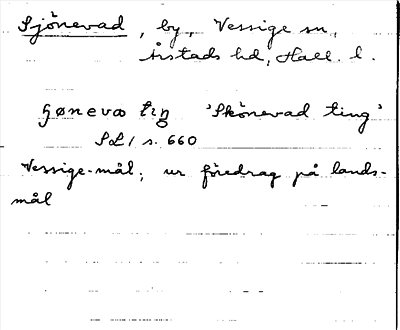 Sjönevad, by, Vessige sn,
Årstads hd, Hall. l.
ɧønevɑ tıŋ 'Skönevad ting'
SL 1 s. 660
Vessige-mål; ur föredrag på lands-
mål